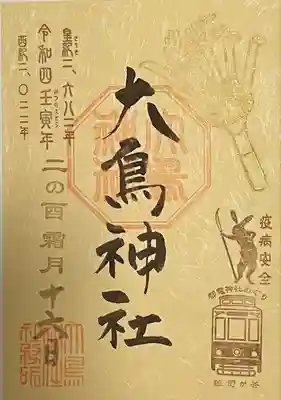 皇紀二、六八二年
令和四壬寅年
西紀二、〇二二年
二の酉 霜月十六日
大鳥神社
疫病安全
都電神社めぐり
雑司が谷